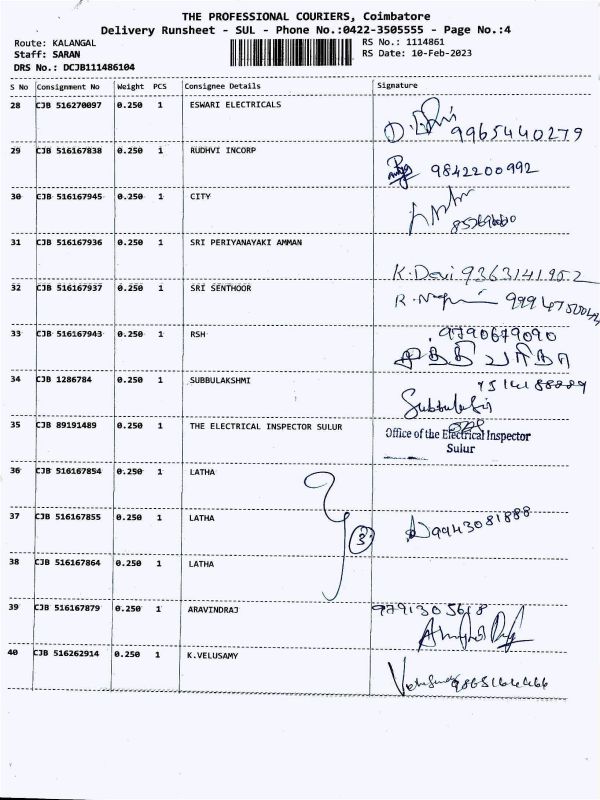 THE PROFESSIONAL COURIERS, Coimbatore
Delivery Runsheet - SUL - Phone No.:0422-3505555 - Page No.:4
Route: KALANGAL
RS No.: 1114861
Staff: SARAN
RS Date: 10-Feb-2023
DRS No.: DCJB111486104
S No Consignment No Weight PCS Consignee Details Signature
28 CJB 516270097 0.250 1 ESWARI ELECTRICALS
9965440279
29 CJB 516167838 0.250 1 RUDHVI INCORP
9842200992
30 CJB 516167945 0.250 1 CITY
31 CJB 516167936 0.250 1 SRI PERIYANAYAKI AMMAN
K. Devi 9363141952
32 CJB 516167937 0.250 1 SRI SENTHOOR
33 CJB 516167943 0.250 1 RSH
9790679090
34 CJB 1286784 0.250 1 SUBBULAKSHMI
35 CJB 89191489 0.250 1 THE ELECTRICAL INSPECTOR SULUR
Office of the Electrical Inspector
Sulur
36 CJB 516167854 0.250 1 LATHA
37 CJB 516167855 0.250 1 LATHA
9943081888
3
38 CJB 516167864 0.250 1 LATHA
39 CJB 516167879 0.250 1 ARAVINDRAJ
9791305618
40 CJB 516262914 0.250 1 K.VELUSAMY